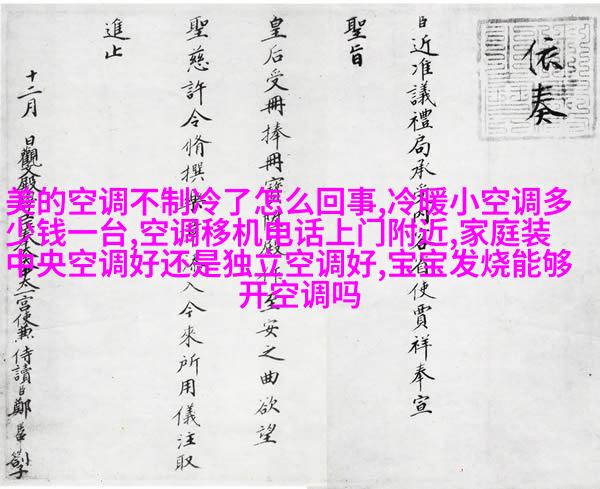 依奏
臣近准議禮局承受賈祥奉宣
聖旨
皇后受冊捧冊寶至安之曲欲望
聖慈許令脩撰入令來所用儀注取
進止
十二月 日觀文殿太一宮使兼侍讀臣鄭
美的空调不制冷了怎么回事,冷暖小空调多
少钱一台,空调移机电话上门附近,家庭装
中央空调好还是独立空调好,宝宝发烧能够
开空调吗